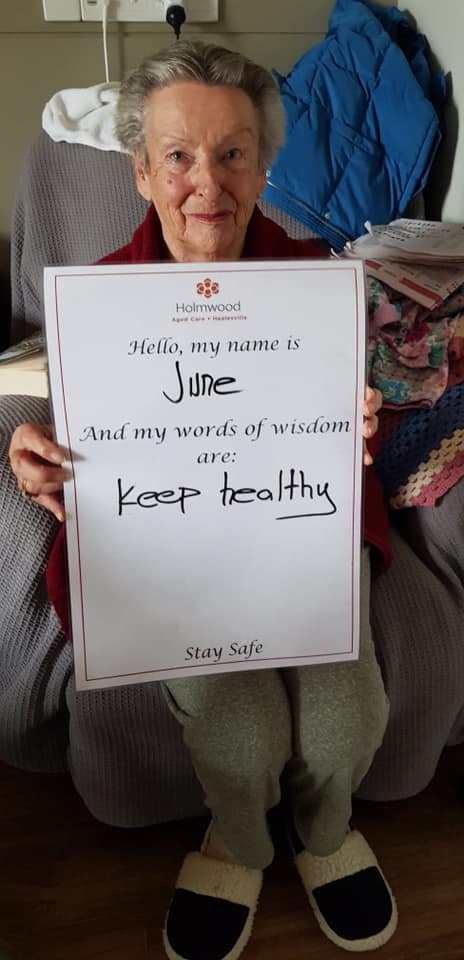 Holmwood
Aged Care • Healesville
Hello, my name is
June
And my words of wisdom
are:
Keep healthy
Stay Safe